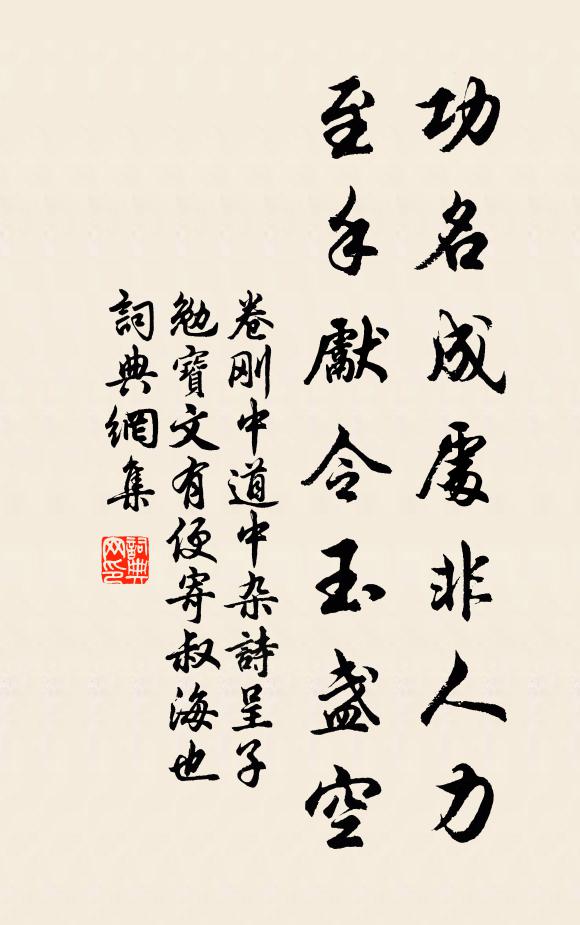 功名成處非人力
至手獻令玉盏空
卷刚中道中杂詩呈子
勉寶文有便寄叔海也
詞典網集
詞典
网印